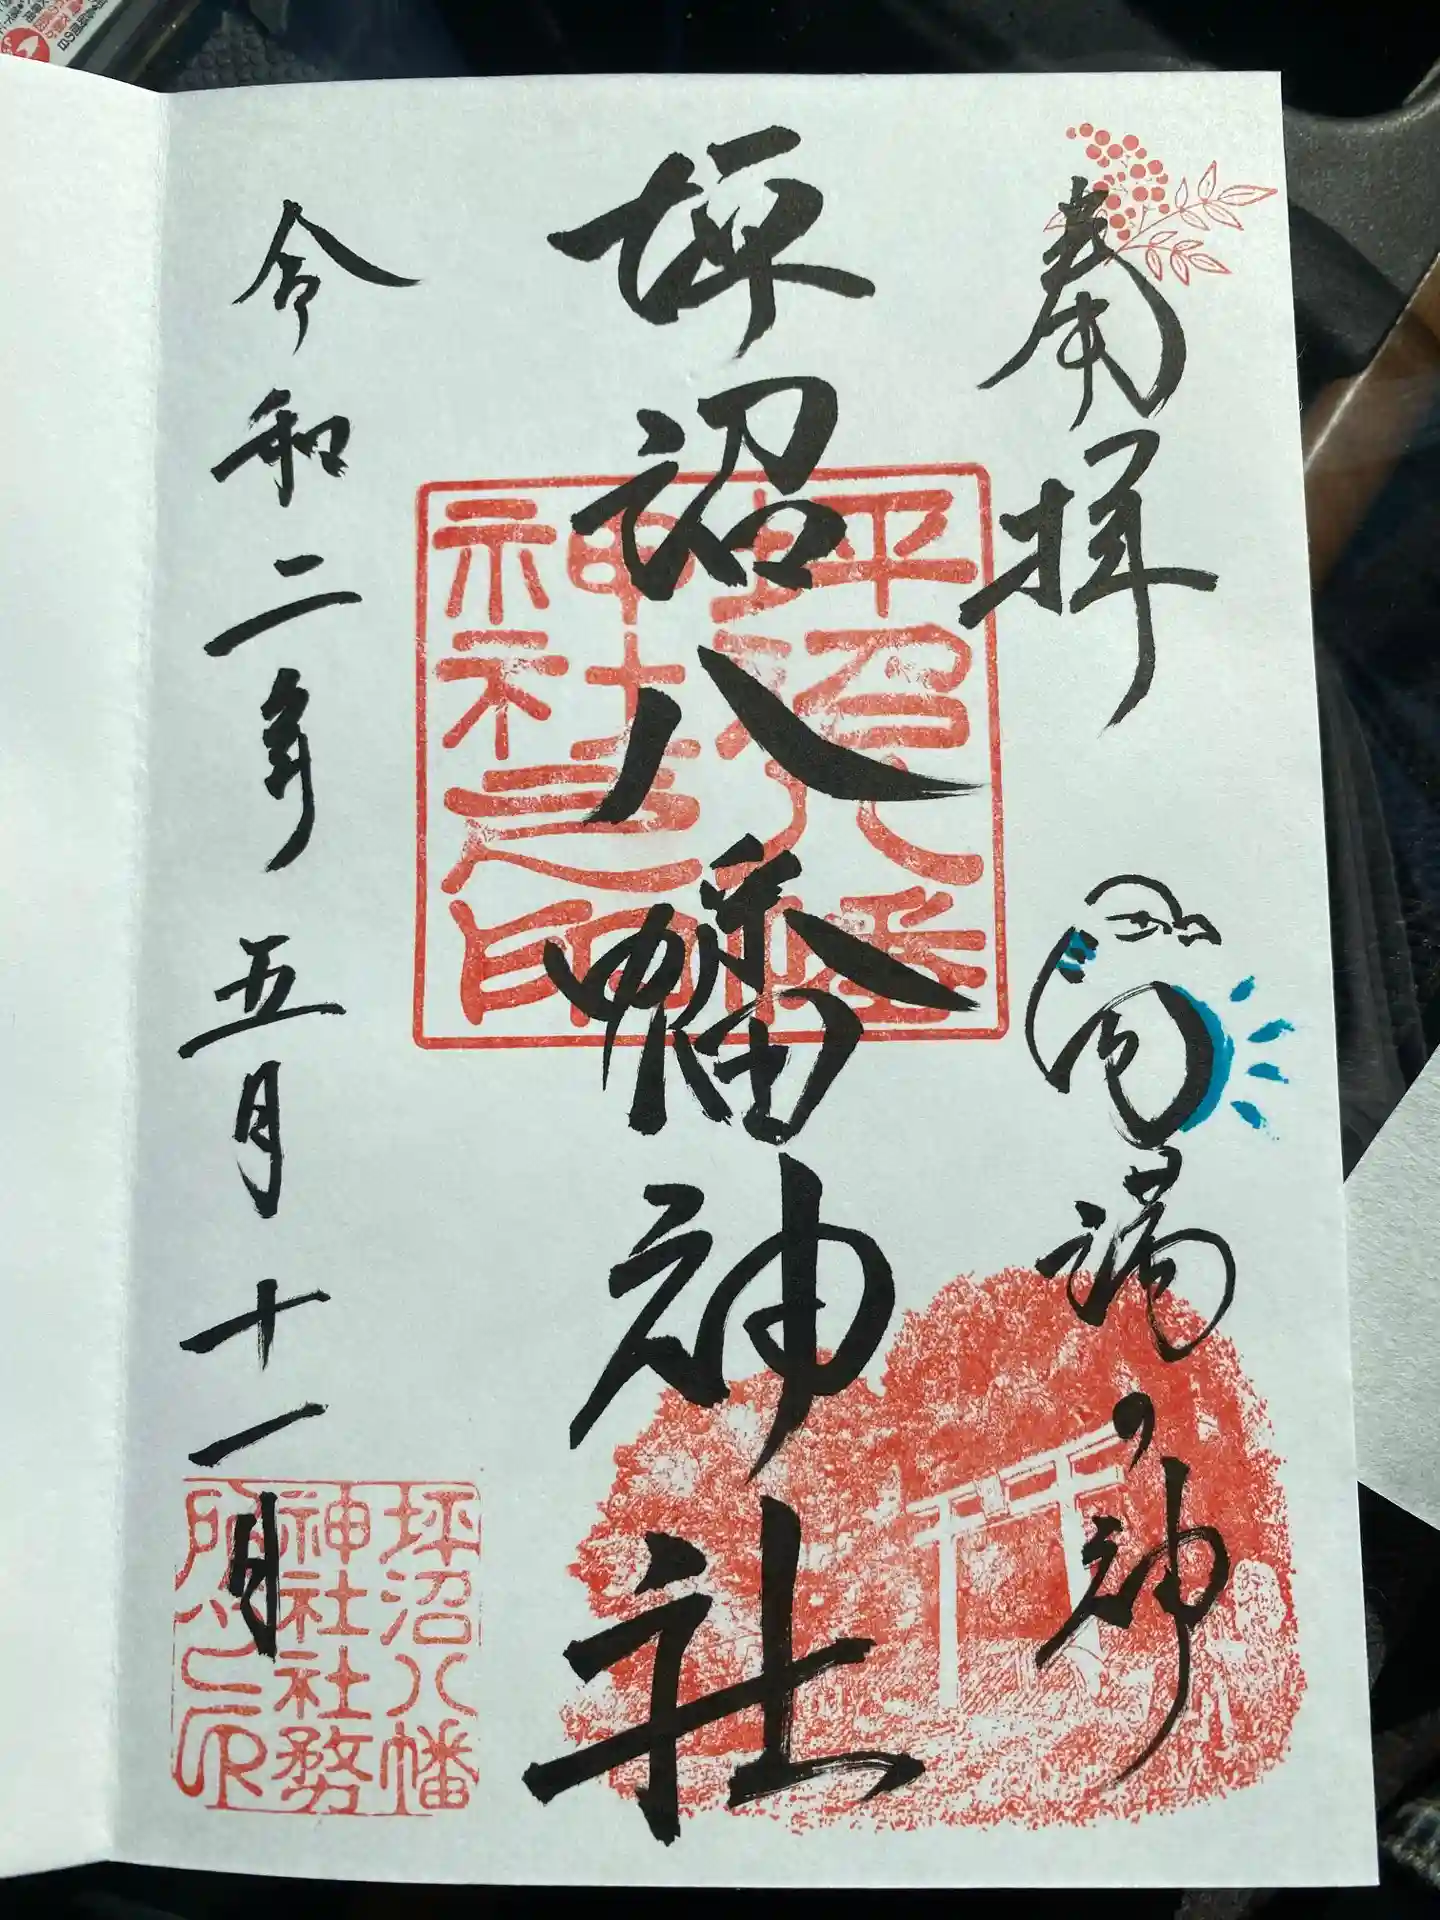 奉拝
の神
坪沼八幡神社
坪沼八幡
神社之印
令和二年五月十一日
坪沼八幡
神社社務
所之印